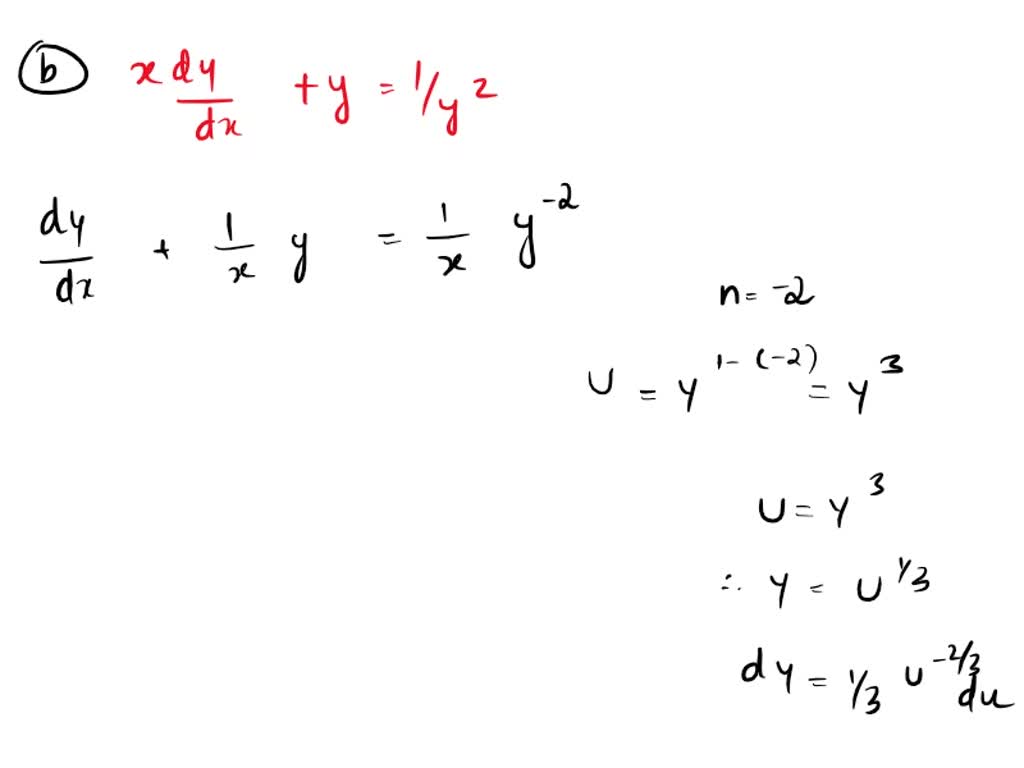 b x dy/dx + y = 1/y²
dy/dx + 1/x y = 1/x y⁻²
n = -2
U = y¹⁻⁽⁻²⁾ = y³
U = y³
∴ y = U^1/3
dy = 1/3 U^-2/3 du